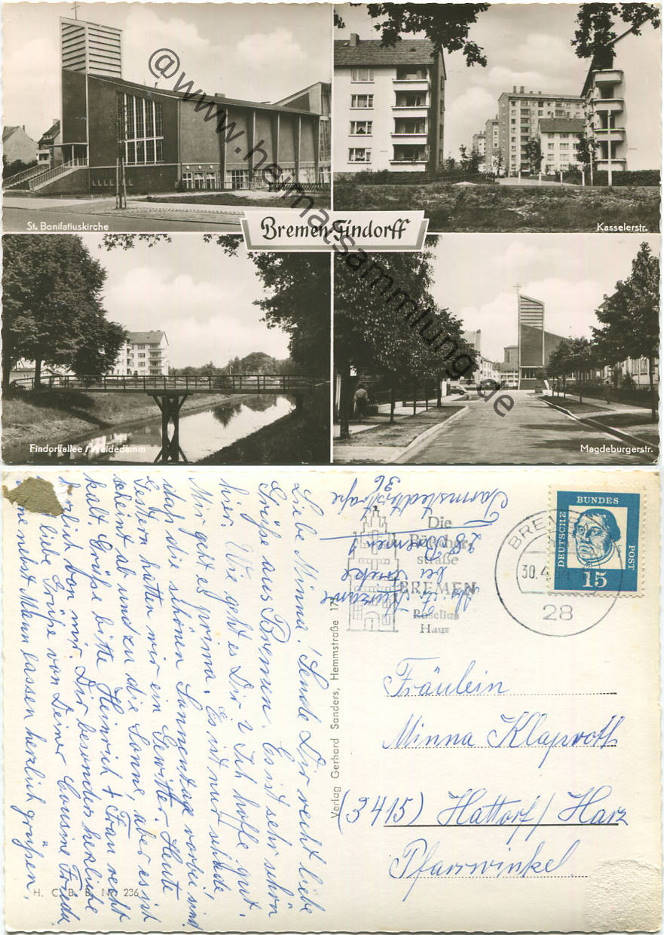 St. Bonifatiuskirche
Kasselerstr.
Bremen-Findorff
Findorffallee / Weidedamm
Magdeburgerstr.
@www.heimatsammlung.de
Liebe Minna! Sende Dir recht liebe
Grüße aus Bremen. Es ist sehr schön
hier. Wie geht es Dir? Ich hoffe gut.
Mir geht es prima. Es ist nur schade,
daß die schönen Sonnentage vorbei sind.
Gestern hatten wir ein Gewitter. Heute
scheint ab und zu die Sonne, aber es ist
kalt. Grüße bitte Heinrich + Frau recht
herzlich von mir. Dir besonders herzliche
liebe Grüße von Deiner Cousine Frieda.
nebst Mann lassen herzlich grüßen.
H. C. B. B. Nr. 236
Verlag Gerhard Sanders, Hemmstraße 171
bei
28 Bremen 1
Darmstedtstraße
36
Die
Böttcher-
straße
BREMEN
Roselius
Haus
BREMEN
30.4
28
DEUTSCHE
BUNDES
POST
15
Fräulein
Minna Klaproth
(3415) Hattorf/Harz
Pfarrwinkel.